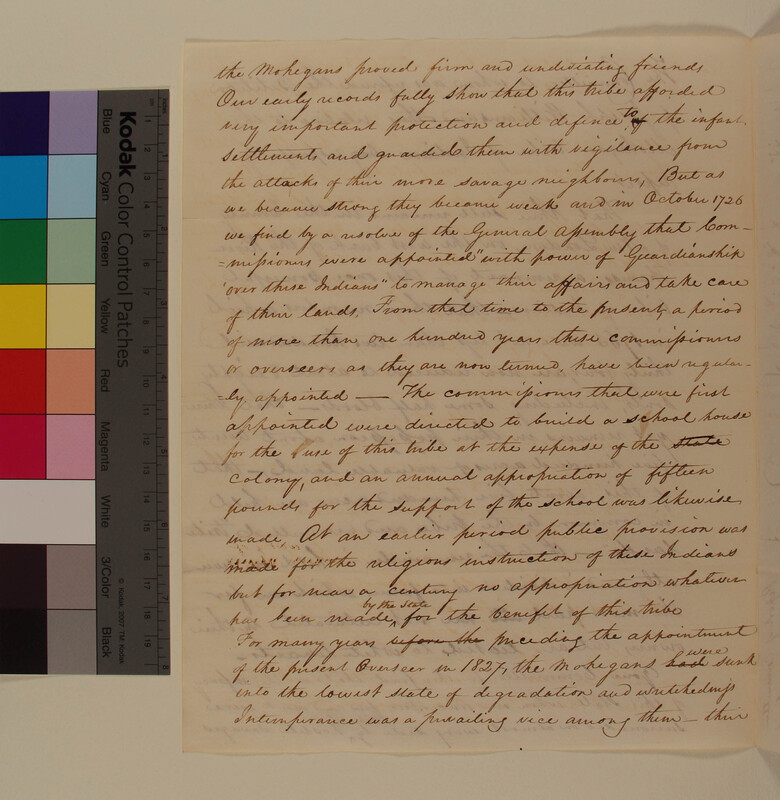 the Mohegans proved firm and undeviating friends
Our early records fully show that this tribe afforded
very important protection and defence to the infant
settlements and guarded them with vigilence from
the attacks of their more savage neighbours, But as
we became strong they became weak and in October 1726
we find by a resolve of the General Assembly that Com-
=missioners were appointed "with power of Geardianship
"over these Indians" to manage their affairs and take care
of their lands. From that time to the present, a period
of more than one hundred years these commissioners
or overseers as they are now termed, have been regular-
=ly appointed — The commissioners that were first
appointed were directed to build a school house
for the use of this tribe at the expense of the state
colony, and an annual appropriation of fifteen
pounds for the support of the school was likewise
made, At an earlier period public provision was
made for the religious instruction of these Indians
but for near a century no appropriation whatever
by the State
has been made ^ for the benefit of this tribe
For many years before the preceding the appointment
were
of the present Overseer in 1827, the Mohegans had sunk
into the lowest state of degradation and wretchedness
Intemperance was a prevailing vice among them — their
Kodak Color Control Patches
Blue
Cyan
Green
Yellow
Red
Magenta
White
3/Color
Black
© Kodak, 2007 TM: Kodak